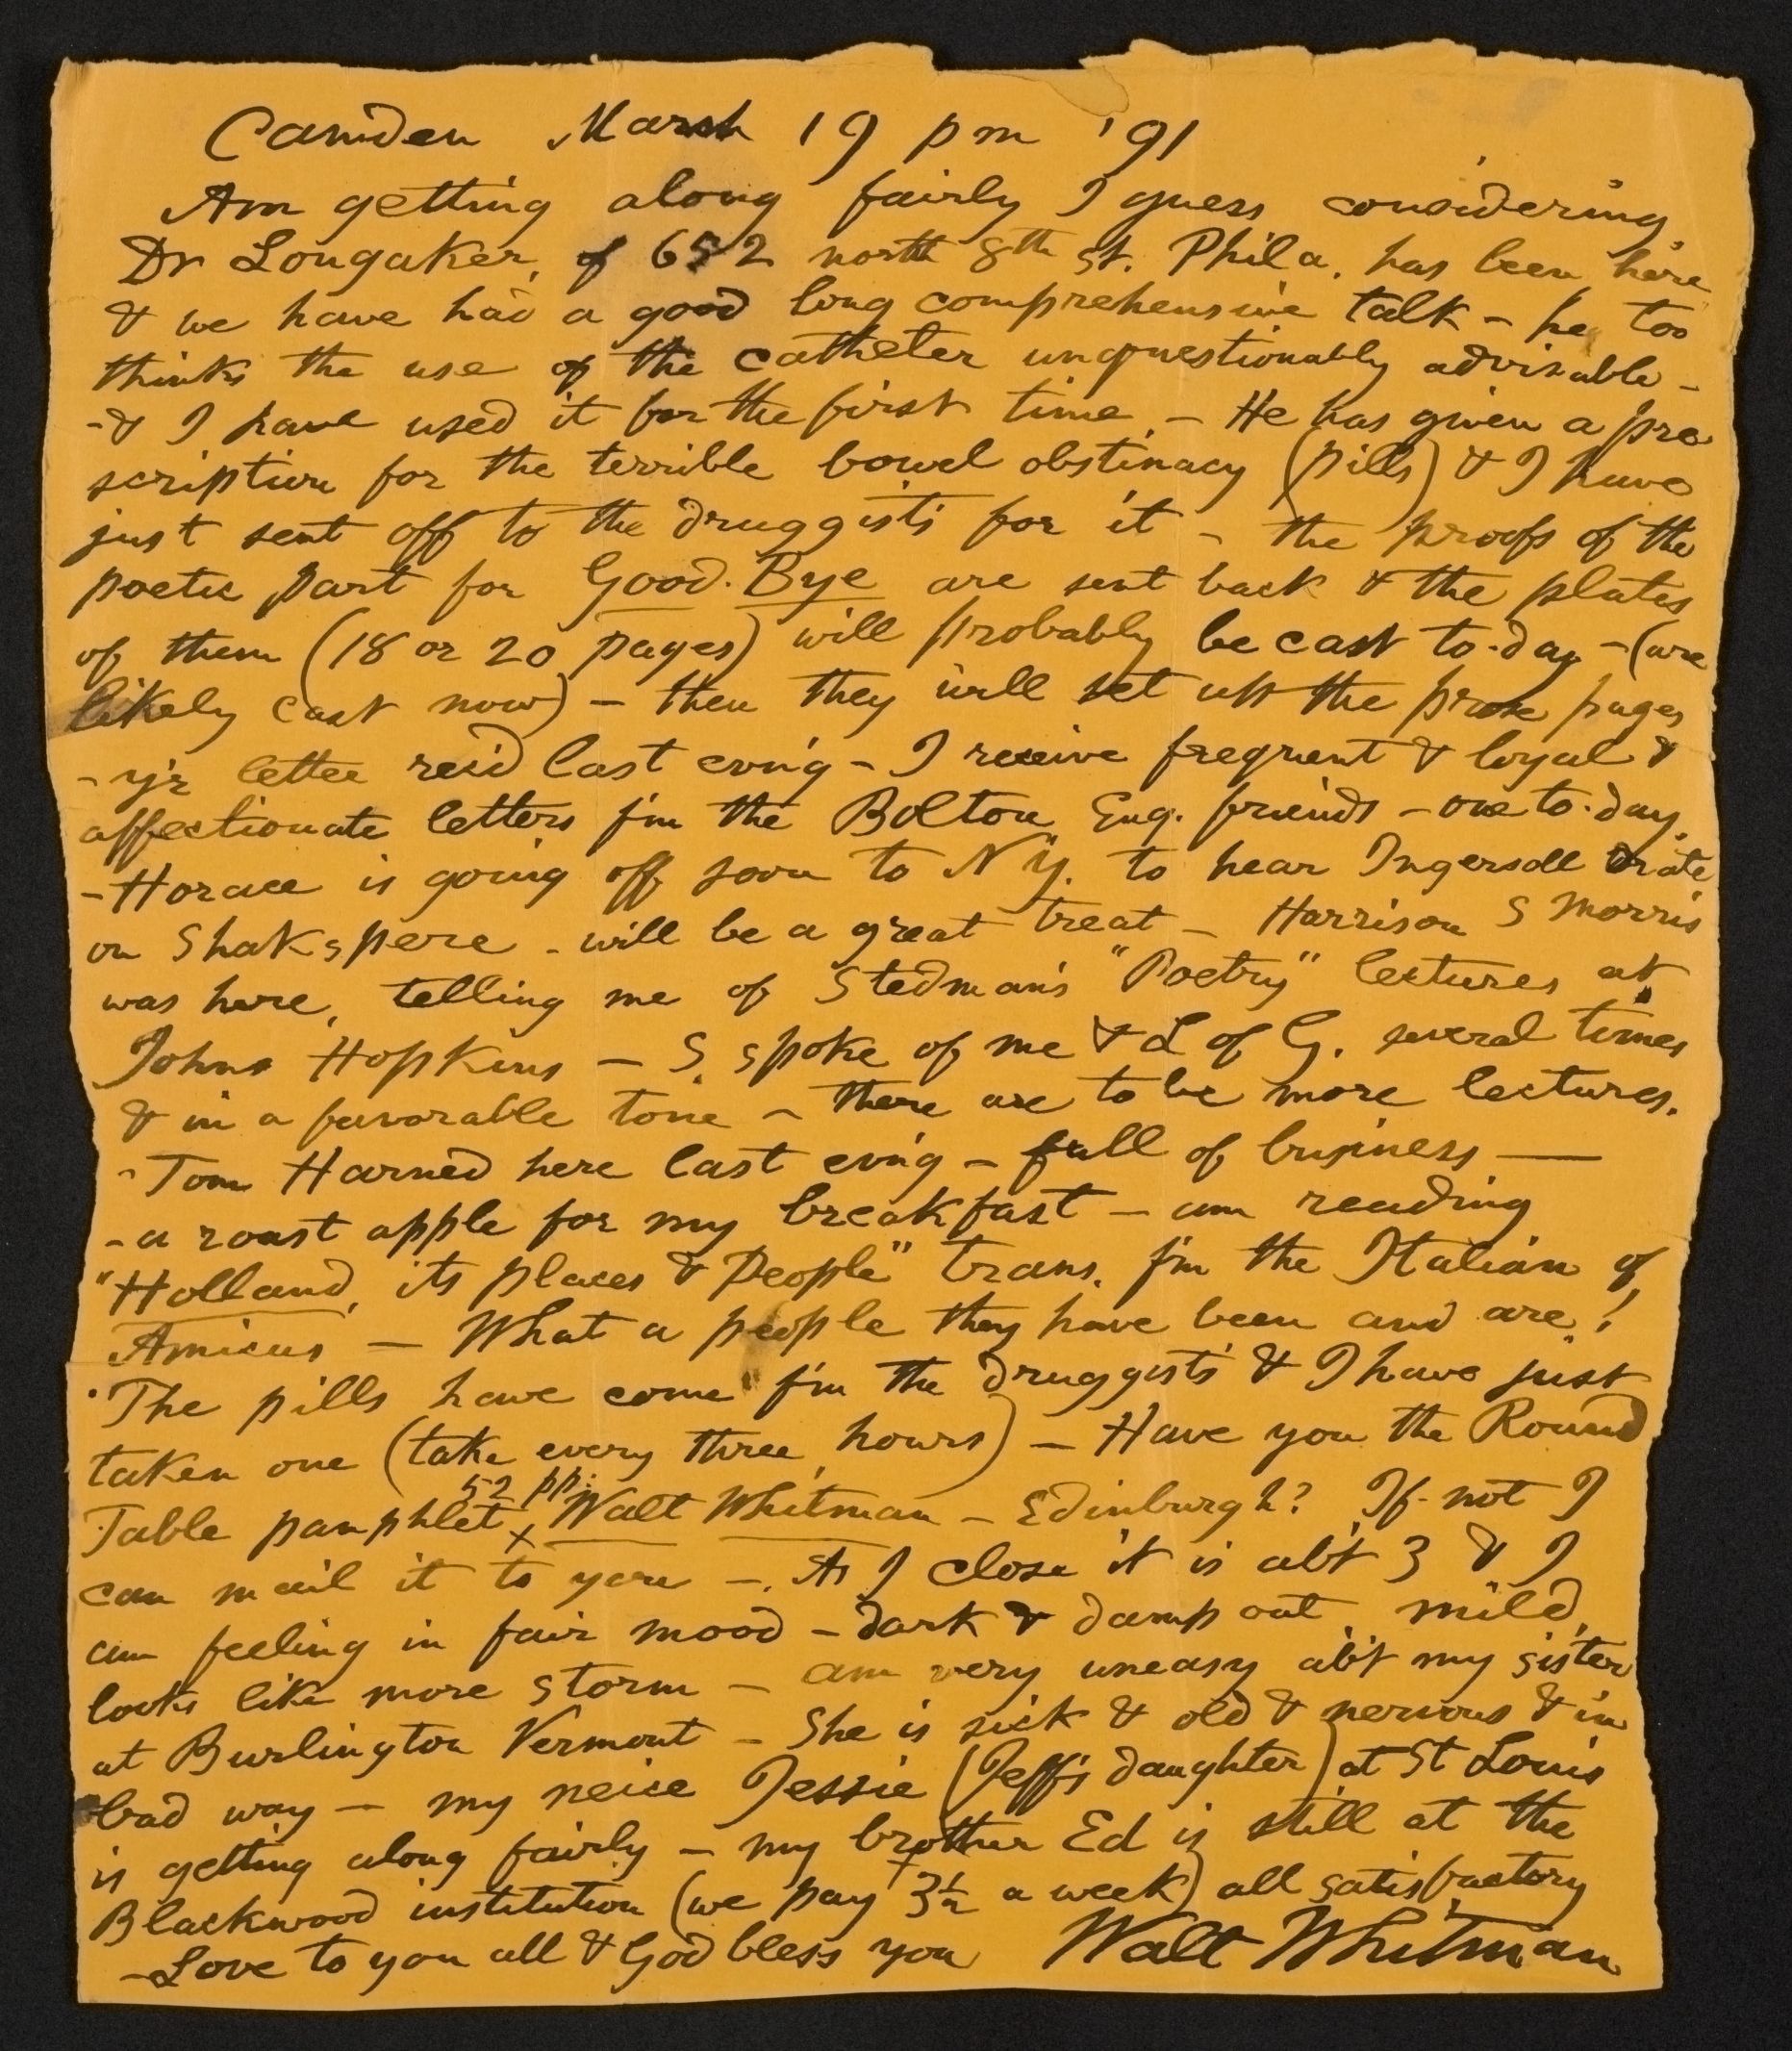 Camden March 19 pm '91
Am getting along fairly I guess considering.
Dr Longaker, of 652 north 8th st. Phila. has been here
& we have had a good long comprehensive talk – he too
thinks the use of the catheter unquestionably advisable –
– & I have used it for the first time. – He has given a pre
scription for the terrible bowel obstinacy (pills) & I have
just sent off to the druggists for it – the proofs of the
poetic part for Good-Bye are sent back & the plates
of them (18 or 20 pages) will probably be cast to-day – (are
likely cast now) – then they will set up the prose pages
– y'r letter rec'd last evn'g – I receive frequent & loyal &
affectionate letters f'm the Bolton Eng. friends – one to-day.
– Horace is going off soon to N Y. to hear Ingersoll orate
on Shakspere – will be a great treat – Harrison S Morris
was here, telling me of Stedman's "Poetry" lectures at
Johns Hopkins – S. spoke of me & L of G. several times
& in a favorable tone – there are to be more lectures.
– Tom Harned here last evn'g – full of business —
– a roast apple for my breakfast – am reading
"Holland, its places & People" trans. f'm the Italian of
Amicus — What a people they have been and are!
The pills have come f'm the druggists & I have just
taken one (take every three hours) – Have you the Round
52 pp:
Table pamphlet x Walt Whitman – Edinburgh? If not I
can mail it to you –. As I close it is ab't 3 & I
am feeling in fair mood – dark & damp out, mild,
looks like more storm – am very uneasy ab't my sister
at Burlington Vermont – She is sick & old & nervous & in
bad way – my neice Jessie (Jeff's daughter) at St Louis
is getting along fairly – my brother Ed is still at the
Blackwood institution (we pay 3½ a week) all satisfactory
– Love to you all & God bless you Walt Whitman